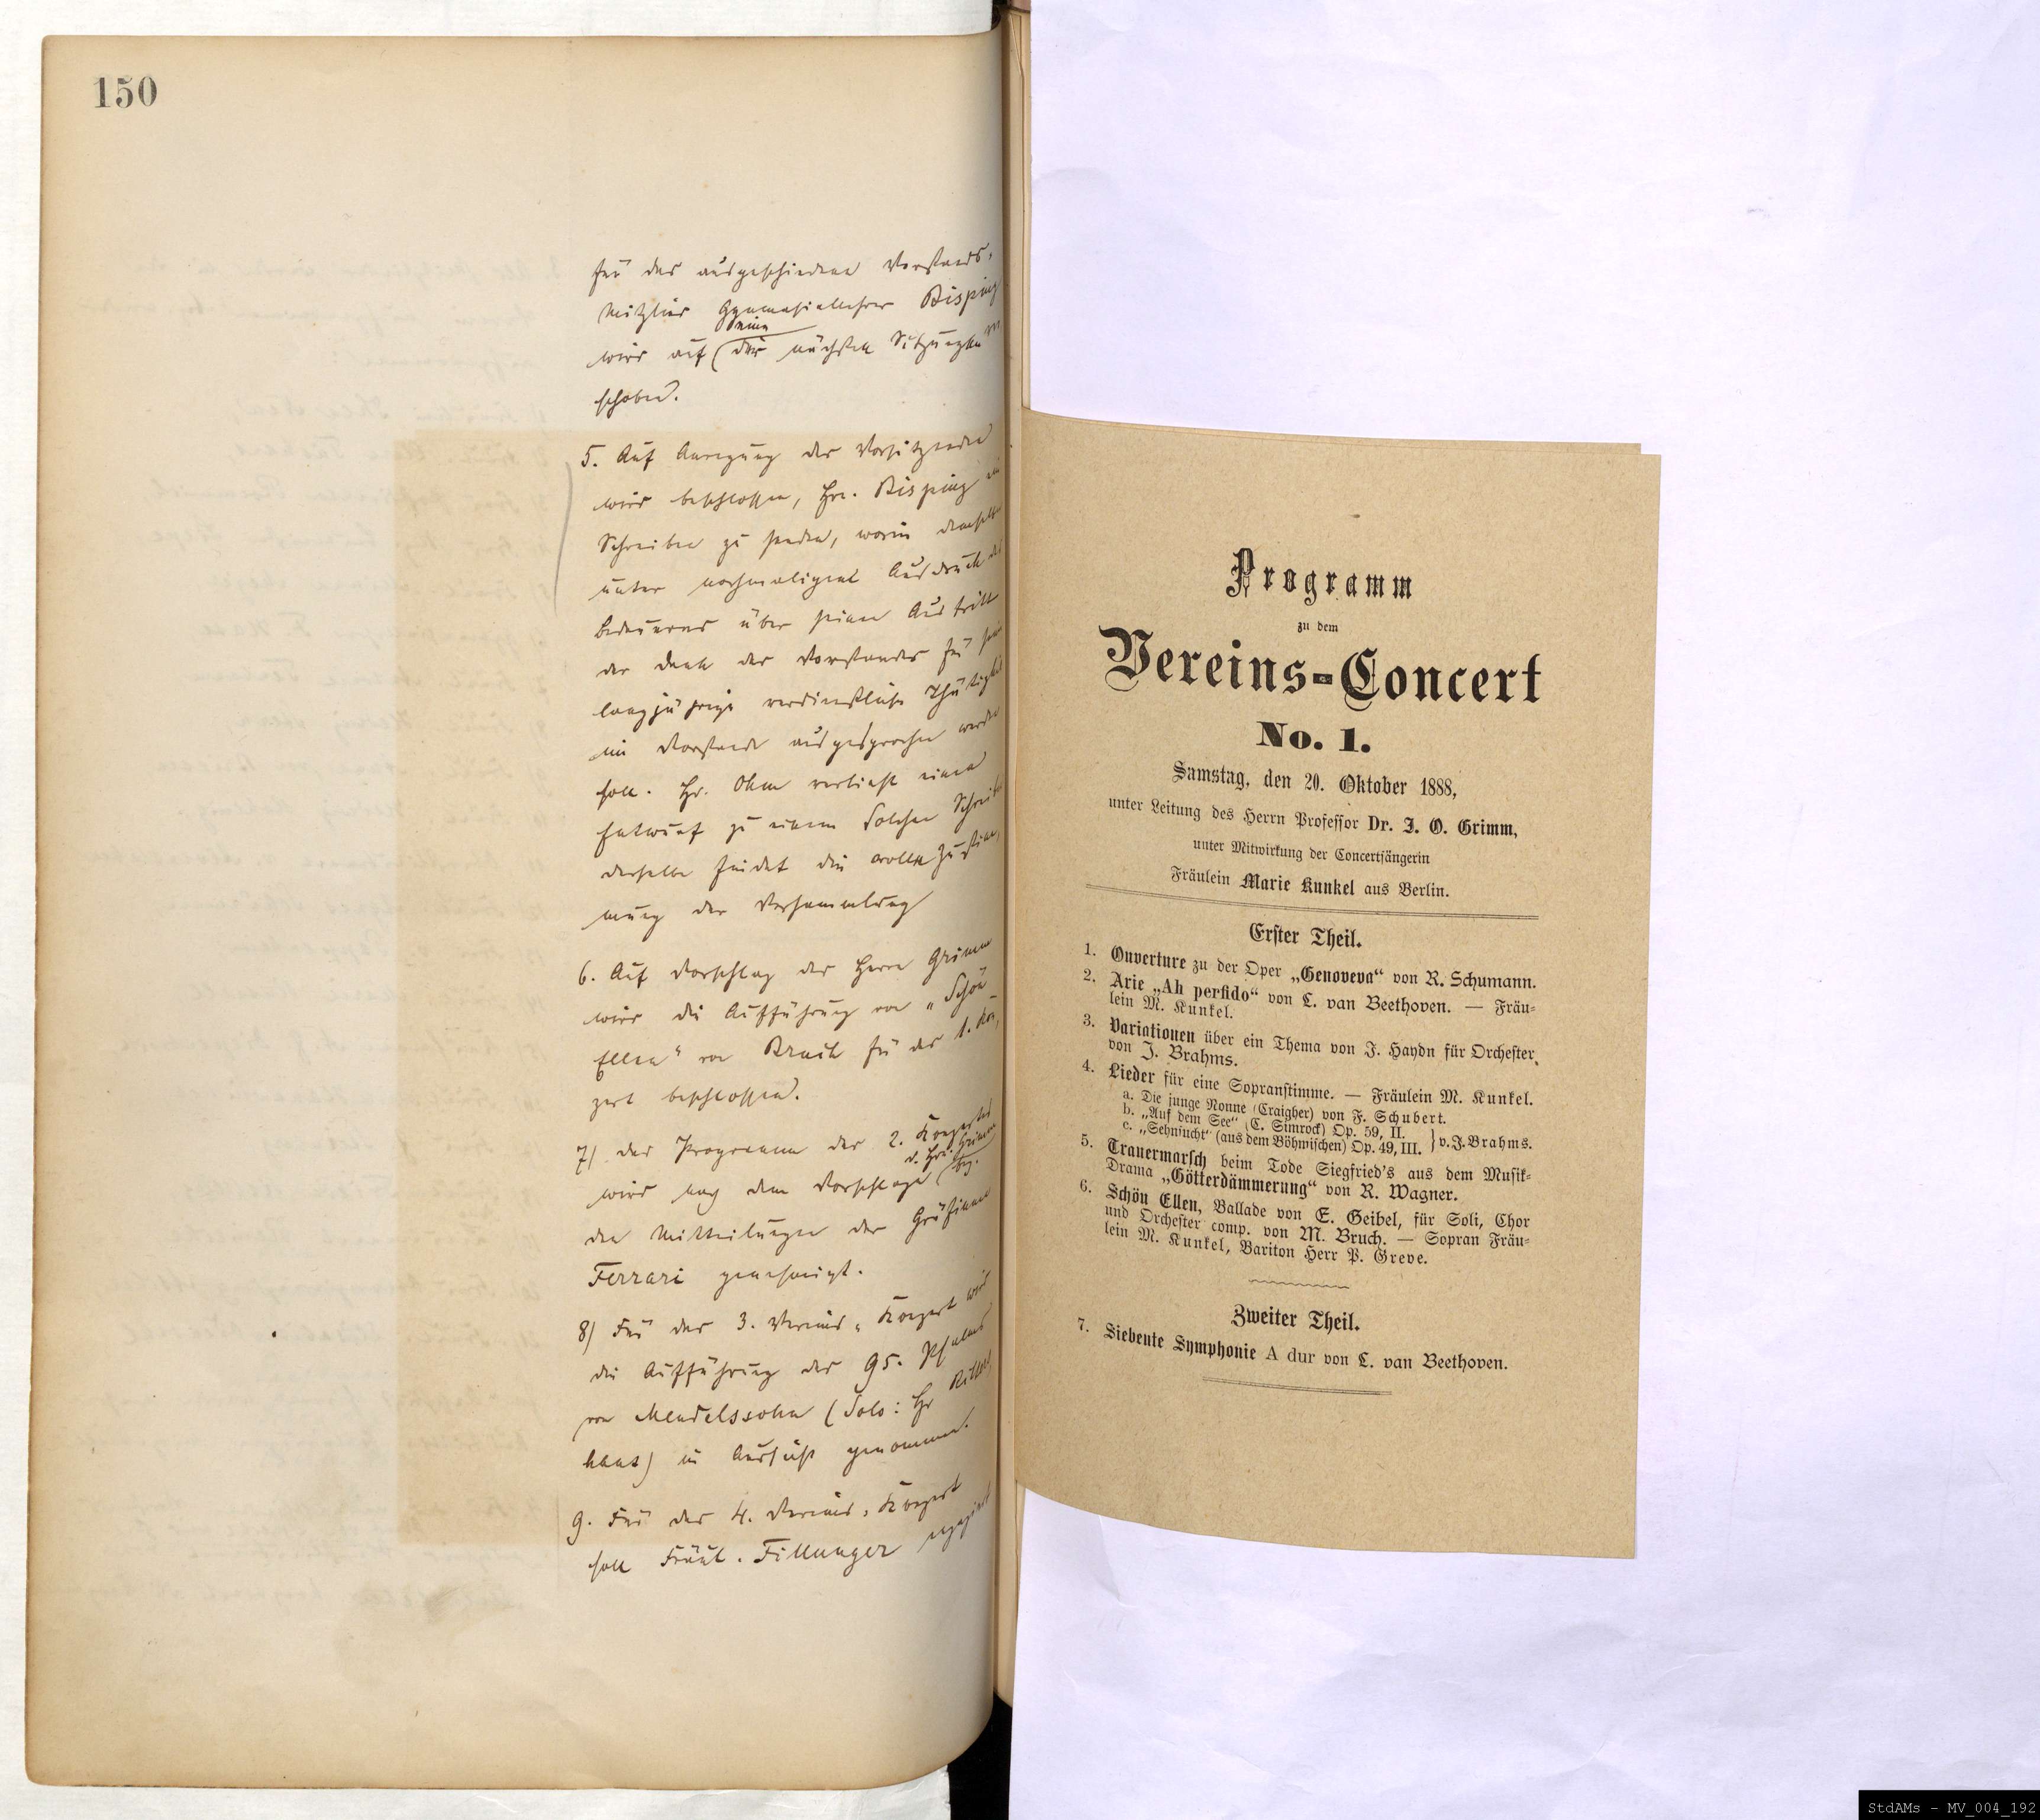 150
für das ausgeschiedene Vorstands-
Mitglied Gymnasiallehrer Bisping
wird auf eine der nächsten Sitzungen ver
schoben.
5. Auf Anregung des Vorsitzenden
wird beschlossen, Hrn. Bisping ein
Schreiben zu senden, worin demselben
unter nochmaligem Ausdruck des
Bedauerns über seinen Austritt
der Dank des Vorstandes für seine
langjährige verdienstliche Thätigkeit
im Vorstande ausgesprochen werden
soll. Hr. Ohm verliest einen
Entwurf zu einem solchen Schreiben
derselbe findet die volle Zustim-
mung der Versammlung
6. Auf Vorschlag des Herrn Grimm
wird die Aufführung von "Schön
Ellen" von Bruch für das 1. Kon-
zert beschlossen.
7) Das Programm des 2. Konzertes
wird nach dem Vorschlage d. Hrn. Grimm bez.
den Mitteilungen der
Ferrari genehmigt.
8) Für das 3. Vereins-Konzert wird
die Aufführung des 95. Psalmes
von Mendelssohn (Solo: Hr
haus) in Aussicht genommen.
9. Für das 4. Vereins-Konzert
soll Fräul. Fillunger engagiert
Programm
zu dem
Vereins=Concert
No. 1.
Samstag, den 20. Oktober 1888,
unter Leitung des Herrn Professor Dr. J. O. Grimm,
unter Mitwirkung der Concertsängerin
Fräulein Marie Kunkel aus Berlin.
Erster Theil.
1. Ouverture zu der Oper „Genoveva“ von R. Schumann.
2. Arie „Ah perfido“ von L. van Beethoven. — Fräu=
lein M. Kunkel.
3. Variationen über ein Thema von J. Haydn für Orchester,
von J. Brahms.
4. Lieder für eine Sopranstimme. — Fräulein M. Kunkel.
a. Die junge Nonne (Craigher) von F. Schubert.
b. „Auf dem See“ (C. Simrock) Op. 59, II.
c. „Sehnsucht“ (aus dem Böhmischen) Op. 49, III. } v. J. Brahms.
5. Trauermarsch beim Tode Siegfried's aus dem Musik=
Drama „Götterdämmerung“ von R. Wagner.
6. Schön Ellen, Ballade von E. Geibel, für Soli, Chor
und Orchester comp. von M. Bruch. — Sopran Fräu=
lein M. Kunkel, Bariton Herr P. Greve.
Zweiter Theil.
7. Siebente Symphonie A dur von L. van Beethoven.
StdAMs - MV_004_192